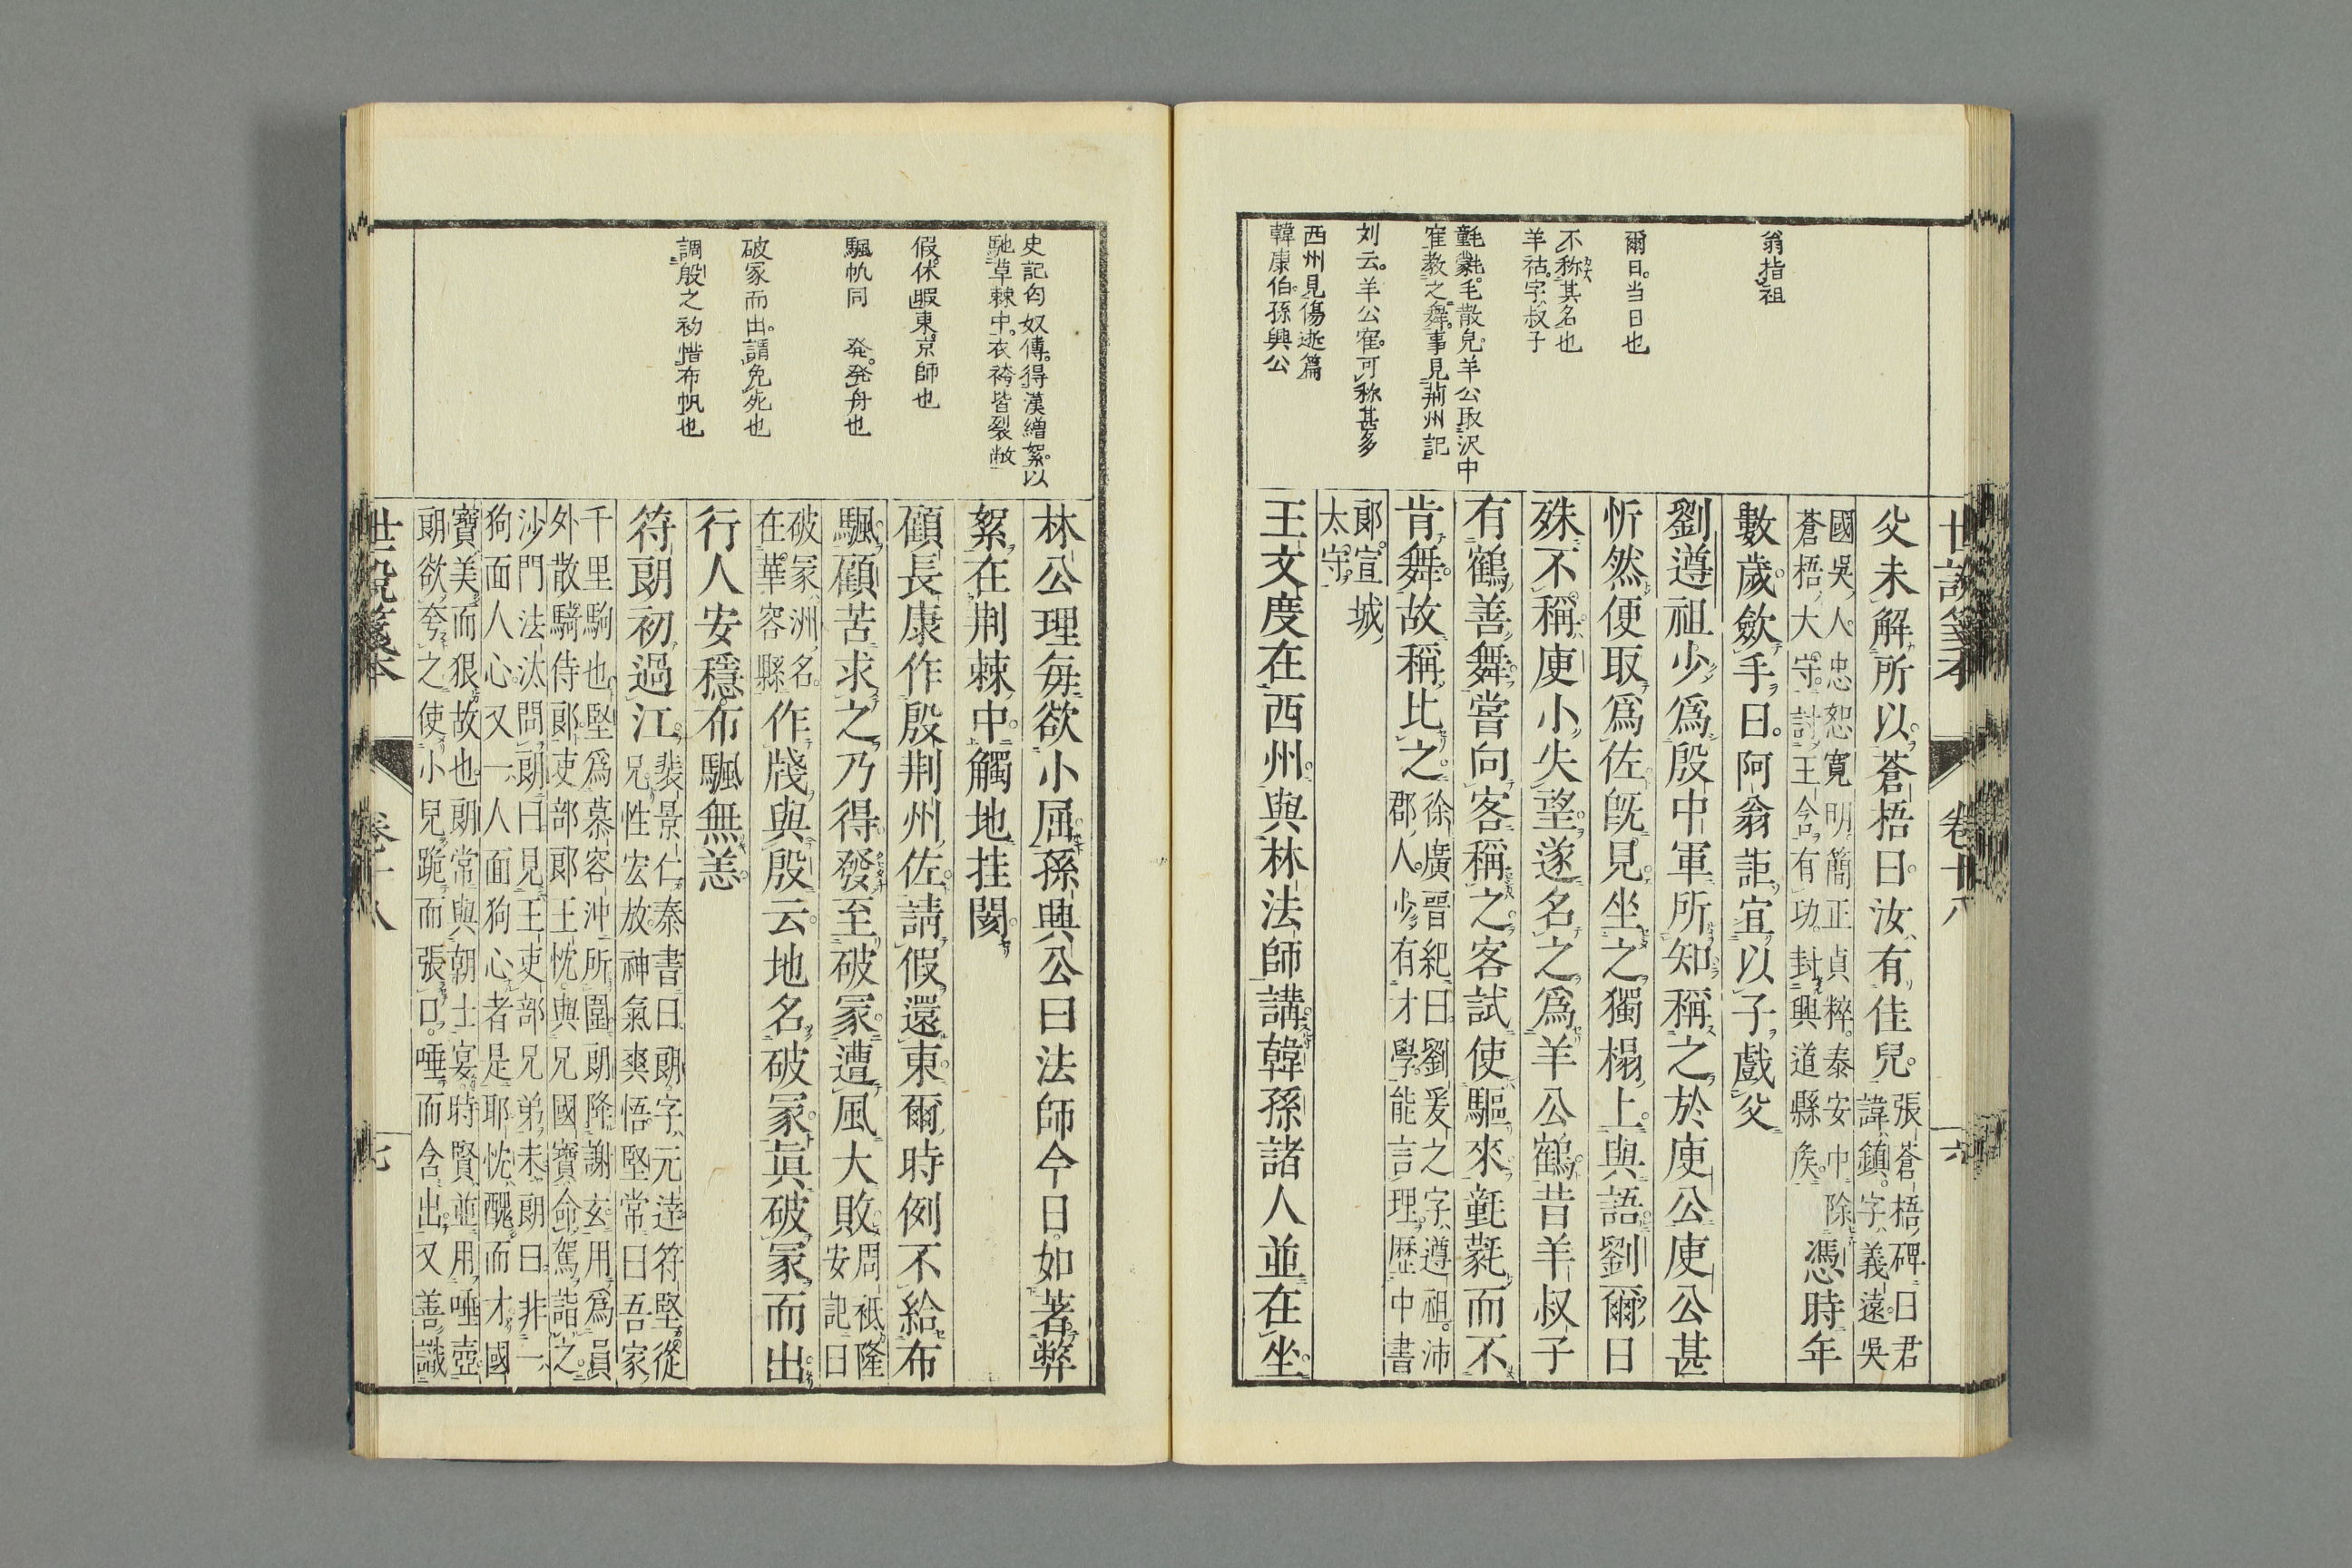 世說箋本
卷十八
六
翁指祖
爾日当日也
不称其名也
羊祜字叔子
氃氋毛散皃羊公取沢中
寉教之舞事見荊州記
刘云羊公寉可称甚多
西州見傷逝篇
韓康伯孫興公
父未解所以蒼梧曰汝有佳兒
張蒼梧碑曰君
諱鎮字義遠吳
國吳人忠恕寬明簡正貞粹泰安中除
蒼梧大守討王含有功封興道縣矦
憑時年
數歲歛手曰阿翁詎宜以子戲父
劉遵祖少爲殷中軍所知稱之於庾公庾公甚
忻然便取爲佐旣見坐之獨榻上與語劉爾日
殊不稱庾小失望遂名之爲羊公鶴昔羊叔子
有鶴善舞嘗向客稱之客試使驅來氃氋而不
肯舞故稱比之
徐廣晉紀曰劉爰之字遵祖沛
郡人少有才學能言理歴中書
郞宣城
太守
王文度在西州與林法師講韓孫諸人並在坐
史記匈奴傳得漢繒絮以
馳草棘中衣袴皆裂敝
假休暇東京師也
颿帆同　発発舟也
破冢而出謂免死也
調殷之初惜布帆也
林公理每欲小屈孫興公曰法師今日如著弊
絮在荆棘中觸地挂閡
顧長康作殷荆州佐請假還東爾時例不給布
颿顧苦求之乃得發至破冢遭風大敗
周祗隆
安記曰
破冢洲名
在華容縣
作牋與殷云地名破冢眞破冢而出
行人安穩布颿無恙
符朗初過江
裴景仁秦書曰朗字元達符堅從
兄性宏放神氣爽悟堅常曰吾家
千里駒也堅爲慕容沖所圍朗降謝玄用爲員
外散騎侍郞吏部郞王忱與兄國寶命駕詣之
沙門法汰問朗曰見王吏部兄弟未朗曰非一
狗面人心又一人面狗心者是耶忱醜而才國
寶美而狠故也朗常與朝士宴時賢並用唾壺
朗欲夸之使小兒跪而張口唾而含出又善識
世說箋本
卷十八
七